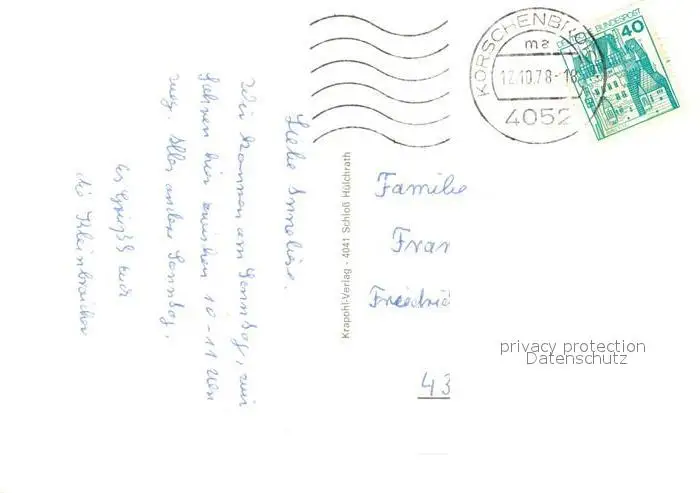 Liebe Anneliese.
Wir kommen am Sonntag, wir
fahren hier zwischen 10-11 Uhr
weg. Alles andere Sonntag.
es grüßt euch
die Kleinbroicher
Krapohl-Verlag - 4041 Schloß Hülchrath
KORSCHENBROICH
ma
12.10.78-18
4052
DEUTSCHE BUNDESPOST
40
Familie
Fran
Friedric
43
privacy protection
Datenschutz